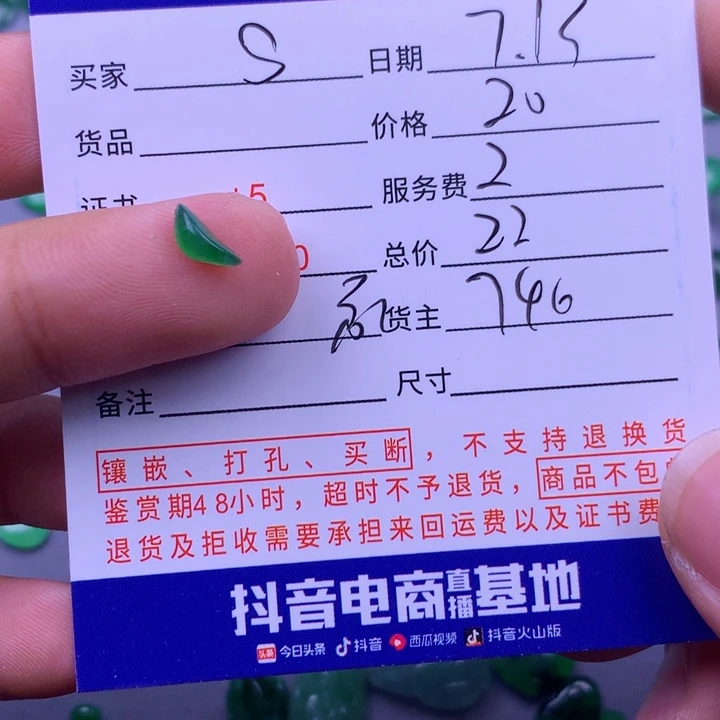 买家 S 日期 7.15
货品 价格 20
证书 15 服务费 2
0 总价 22
货主 746
备注 尺寸
镶嵌、打孔、买断，不支持退换货
鉴赏期48小时，超时不予退货，商品不包
退货及拒收需要承担来回运费以及证书费
抖音电商直播基地
头条 今日头条 抖音 西瓜视频 抖音火山版